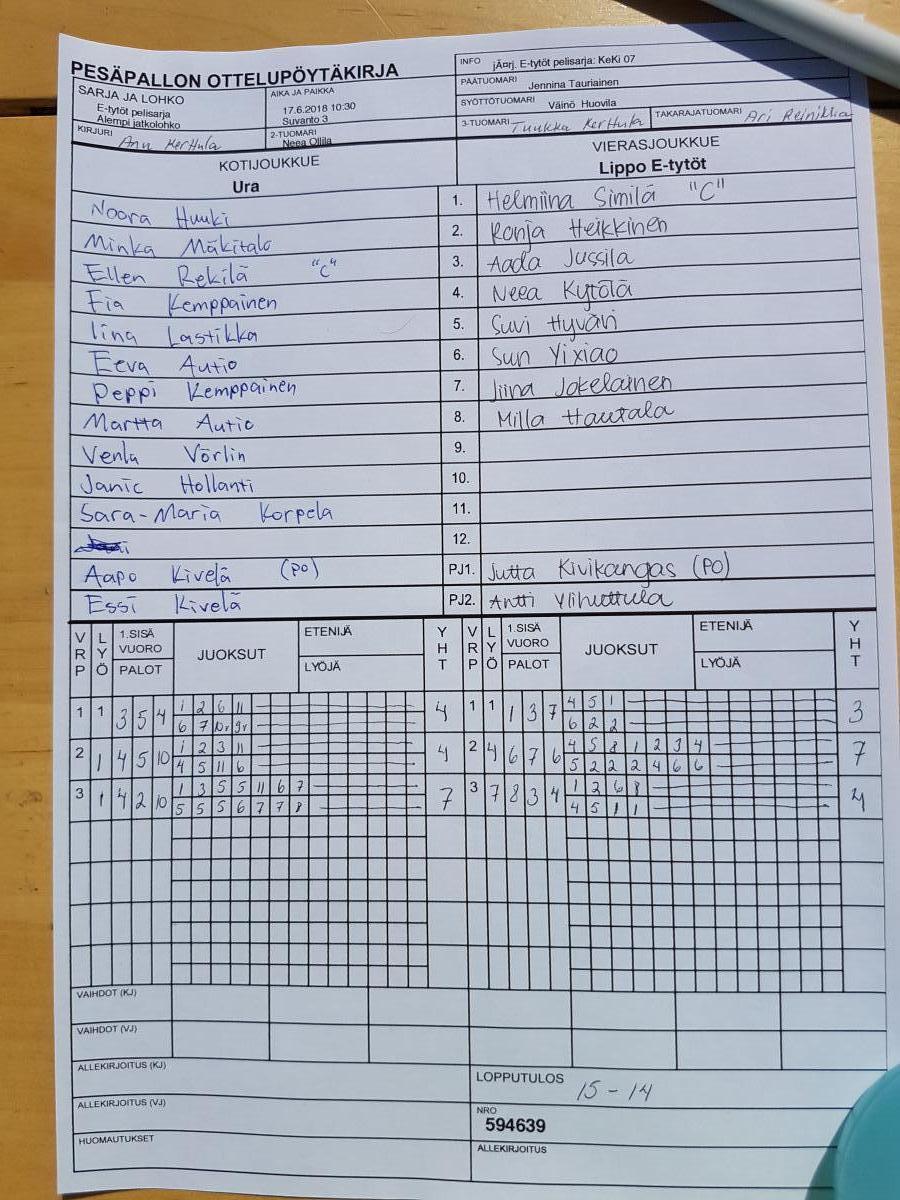 PESÄPALLON OTTELUPÖYTÄKIRJA
SARJA JA LOHKO
E-tytöt pelisarja
Alempi jatkolohko
AIKA JA PAIKKA
17.6.2018 10:30
Suvanto 3
KIRJURI Anu Kerttula
2-TUOMARI
Neea Ollila
INFO jÄ¤rj. E-tytöt pelisarja: KeKi 07
PÄÄTUOMARI Jennina Tauriainen
SYÖTTÖTUOMARI Väinö Huovila
3-TUOMARI Tuukka Kerttula TAKARAJATUOMARI Ari Reinikka
KOTIJOUKKUE
Ura
VIERASJOUKKUE
Lippo E-tytöt
Noora Huuki 1. Helmiina Similä "C"
Minka Mäkitalo 2. Ronja Heikkinen
Ellen Rekilä "C" 3. Aada Jussila
Fia Kemppainen 4. Neea Kytölä
Iina Lastikka 5. Suvi Hyväri
Eeva Autio 6. Sun Yixiao
Peppi Kemppainen 7. Iina Jokelainen
Martta Autio 8. Milla Hautala
Venla Vörlin 9.
Janic Hollanti 10.
Sara-Maria Korpela 11.
12.
Aapo Kivelä (PO) PJ1. Jutta Kivikangas (PO)
Essi Kivelä PJ2. Antti Ylihuttula
VRP LYÖ 1.SISÄ VUORO PALOT JUOKSUT ETENIJÄ LYÖJÄ YHT VRP LYÖ 1.SISÄ VUORO PALOT JUOKSUT ETENIJÄ LYÖJÄ YHT
1 1 3 5 4 1 2 6 11 4 1 1 1 3 7 4 5 1 3
6 7 6 2 2
2 1 4 5 10 1 2 3 11 4 2 4 6 7 6 4 5 8 1 2 3 4 7
4 5 11 6 5 2 2 2 4 6 6
3 1 4 2 10 1 3 5 5 11 6 7 7 3 7 8 3 4 1 2 6 8 4
5 5 5 6 7 7 8 4 5 1 1
VAIHDOT (KJ)
VAIHDOT (VJ)
ALLEKIRJOITUS (KJ)
ALLEKIRJOITUS (VJ)
HUOMAUTUKSET
LOPPUTULOS 15 - 14
NRO
594639
ALLEKIRJOITUS